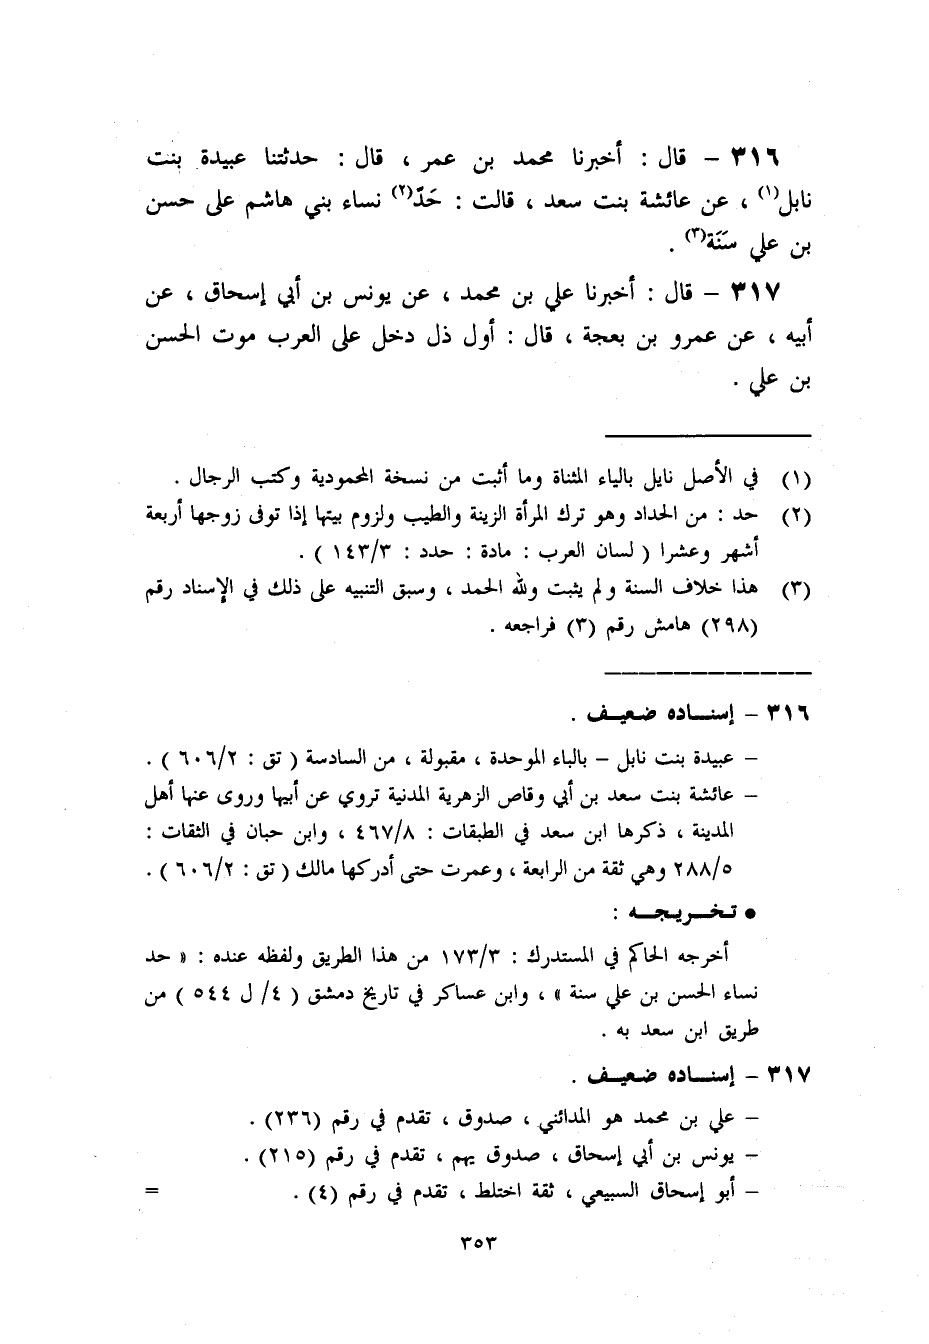 ٣١٦ – قال : أخبرنا محمد بن عمر ، قال : حدثتنا عبيدة بنت
نابل(١) ، عن عائشة بنت سعد ، قالت : حَدّ(٢) نساء بني هاشم على حسن
بن علي سَنَة(٣) .
٣١٧ – قال : أخبرنا علي بن محمد ، عن يونس بن أبي إسحاق ، عن
أبيه ، عن عمرو بن بعجة ، قال : أول ذل دخل على العرب موت الحسن
بن علي .
(١) في الأصل نايل بالياء المثناة وما أثبت من نسخة المحمودية وكتب الرجال .
(٢) حد : من الحداد وهو ترك المرأة الزينة والطيب ولزوم بيتها إذا توفى زوجها أربعة
أشهر وعشرا ( لسان العرب : مادة : حدد : ١٤٣/٣ ) .
(٣) هذا خلاف السنة ولم يثبت ولله الحمد ، وسبق التنبيه على ذلك في الإسناد رقم
(٢٩٨) هامش رقم (٣) فراجعه .
٣١٦ – إسنـــاده ضـعيـف .
– عبيدة بنت نابل – بالباء الموحدة ، مقبولة ، من السادسة ( تق : ٦٠٦/٢ ) .
– عائشة بنت سعد بن أبي وقاص الزهرية المدنية تروي عن أبيها وروى عنها أهل
المدينة ، ذكرها ابن سعد في الطبقات : ٤٦٧/٨ ، وابن حبان في الثقات :
٢٨٨/٥ وهي ثقة من الرابعة ، وعمرت حتى أدركها مالك ( تق : ٦٠٦/٢ ) .
• تـخــريـجــه :
أخرجه الحاكم في المستدرك : ١٧٣/٣ من هذا الطريق ولفظه عنده : « حد
نساء الحسن بن علي سنة » ، وابن عساكر في تاريخ دمشق ( ٤/ ل ٥٤٤ ) من
طريق ابن سعد به .
٣١٧ – إسنـــاده ضـعيـف .
– علي بن محمد هو المدائني ، صدوق ، تقدم في رقم (٢٣٦) .
– يونس بن أبي إسحاق ، صدوق يهم ، تقدم في رقم (٢١٥) .
– أبو إسحاق السبيعي ، ثقة اختلط ، تقدم في رقم (٤) . =
٣٥٣